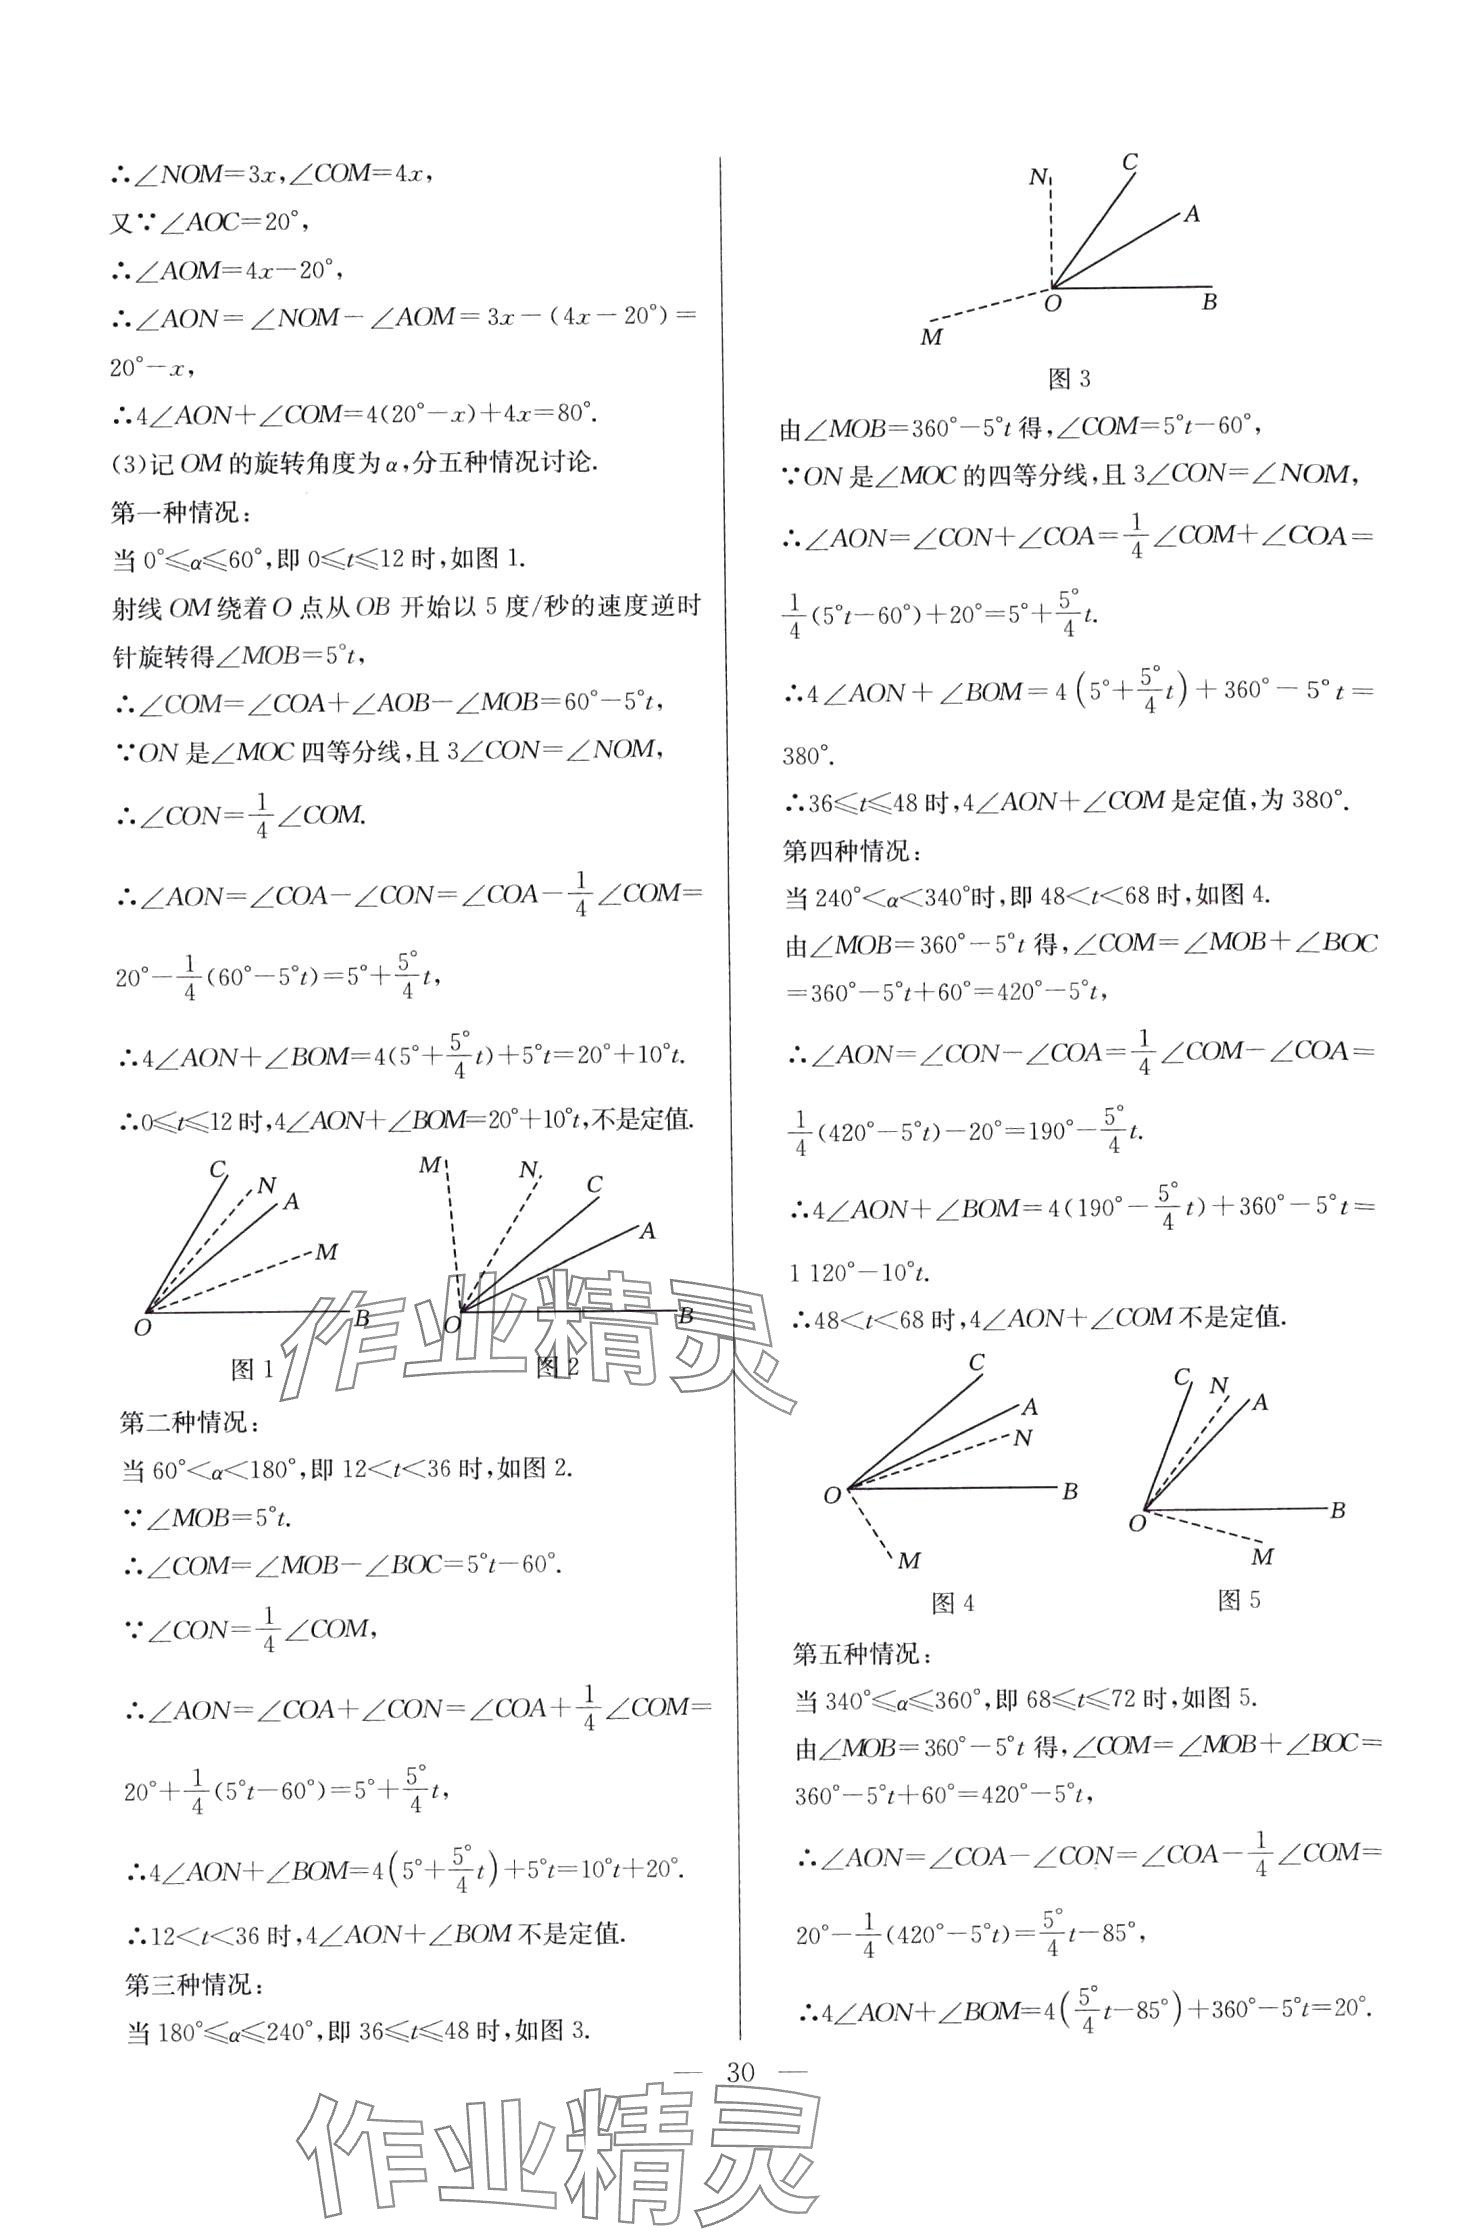 ∴∠NOM=3x,∠COM=4x,
又∵∠AOC=20°,
∴∠AOM=4x-20°,
∴∠AON=∠NOM-∠AOM=3x-(4x-20°)=
20°-x,
∴4∠AON+∠COM=4(20°-x)+4x=80°.
(3)记OM的旋转角度为α,分五种情况讨论.
第一种情况:
当0°≤α≤60°,即0≤t≤12时,如图1.
射线OM绕着O点从OB开始以5度/秒的速度逆时
针旋转得∠MOB=5°t,
∴∠COM=∠COA+∠AOB-∠MOB=60°-5°t,
∵ON是∠MOC四等分线,且3∠CON=∠NOM,
∴∠CON=1/4∠COM.
∴∠AON=∠COA-∠CON=∠COA-1/4∠COM=
20°-1/4(60°-5°t)=5°+5°/4t,
∴4∠AON+∠BOM=4(5°+5°/4t)+5°t=20°+10°t.
∴0≤t≤12时,4∠AON+∠BOM=20°+10°t,不是定值.
C N A M O B
M N C A O B
图1 图2
第二种情况:
当60°<α<180°,即12<t<36时,如图2.
∵∠MOB=5°t.
∴∠COM=∠MOB-∠BOC=5°t-60°.
∵∠CON=1/4∠COM,
∴∠AON=∠COA+∠CON=∠COA+1/4∠COM=
20°+1/4(5°t-60°)=5°+5°/4t,
∴4∠AON+∠BOM=4(5°+5°/4t)+5°t=10°t+20°.
∴12<t<36时,4∠AON+∠BOM不是定值.
第三种情况:
当180°≤α≤240°,即36≤t≤48时,如图3.
N C A O B M
图3
由∠MOB=360°-5°t得,∠COM=5°t-60°,
∵ON是∠MOC的四等分线,且3∠CON=∠NOM,
∴∠AON=∠CON+∠COA=1/4∠COM+∠COA=
1/4(5°t-60°)+20°=5°+5°/4t.
∴4∠AON+∠BOM=4(5°+5°/4t)+360°-5°t=
380°.
∴36≤t≤48时,4∠AON+∠COM是定值,为380°.
第四种情况:
当240°<α<340°时,即48<t<68时,如图4.
由∠MOB=360°-5°t得,∠COM=∠MOB+∠BOC
=360°-5°t+60°=420°-5°t,
∴∠AON=∠CON-∠COA=1/4∠COM-∠COA=
1/4(420°-5°t)-20°=190°-5°/4t.
∴4∠AON+∠BOM=4(190°-5°/4t)+360°-5°t=
1 120°-10°t.
∴48<t<68时,4∠AON+∠COM不是定值.
C A N O B M
C N A O B M
图4 图5
第五种情况:
当340°≤α≤360°,即68≤t≤72时,如图5.
由∠MOB=360°-5°t得,∠COM=∠MOB+∠BOC=
360°-5°t+60°=420°-5°t,
∴∠AON=∠COA-∠CON=∠COA-1/4∠COM=
20°-1/4(420°-5°t)=5°/4t-85°,
∴4∠AON+∠BOM=4(5°/4t-85°)+360°-5°t=20°.
— 30 —
作业精灵
作业精灵